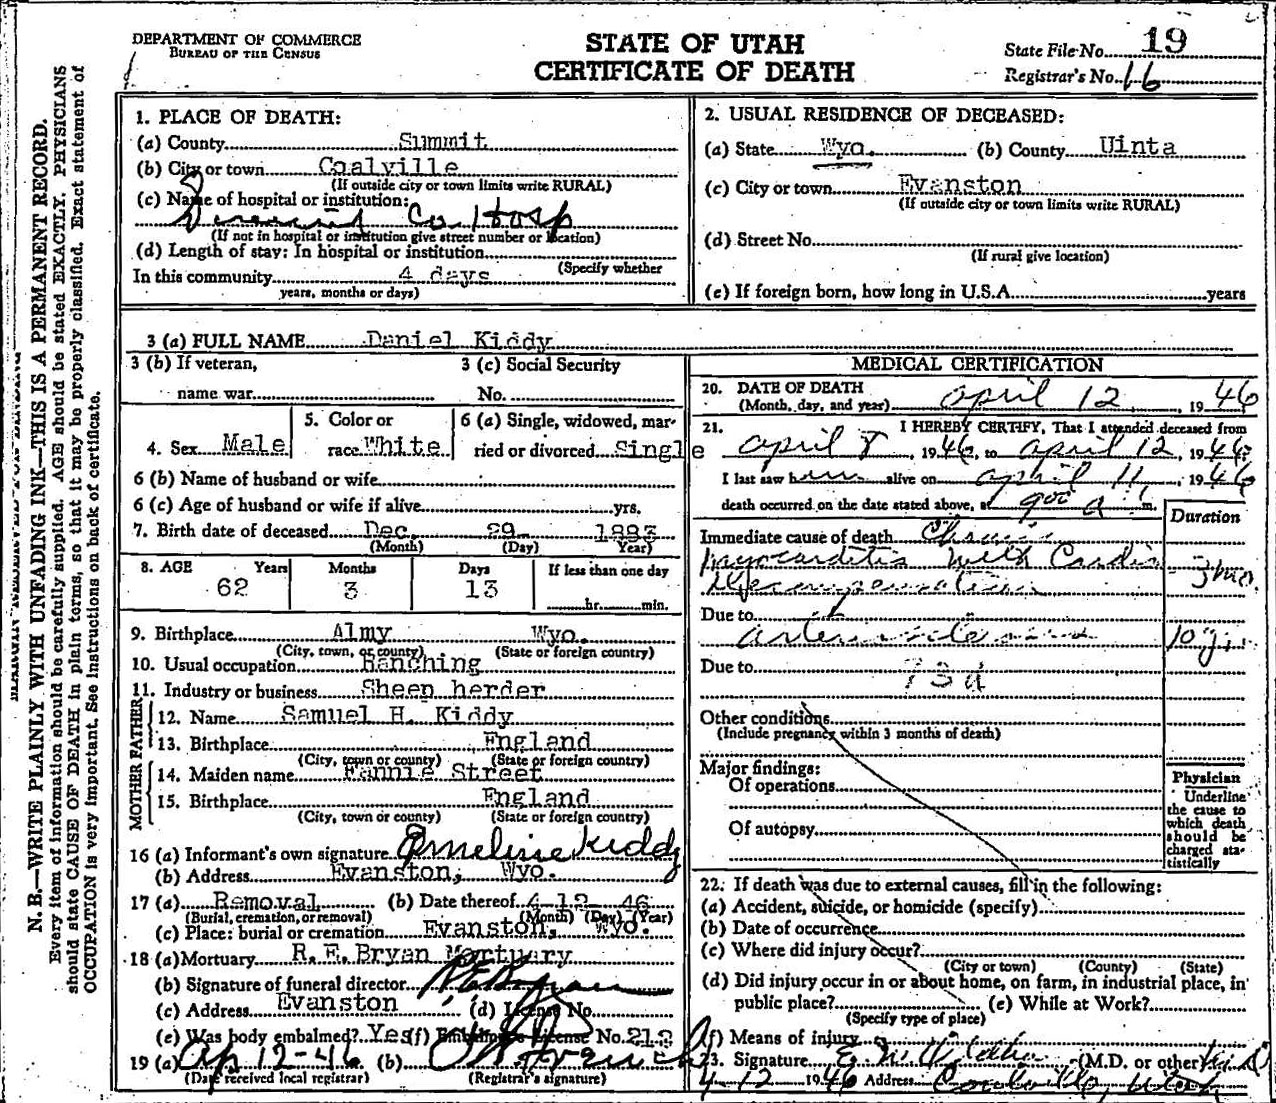 DEPARTMENT OF COMMERCE
BUREAU OF THE CENSUS
STATE OF UTAH
CERTIFICATE OF DEATH
State File No. 19
Registrar's No. 16
N. B.—WRITE PLAINLY WITH UNFADING INK—THIS IS A PERMANENT RECORD.
Every item of information should be carefully supplied. AGE should be stated EXACTLY. PHYSICIANS
should state CAUSE OF DEATH in plain terms, so that it may be properly classified. Exact statement of
OCCUPATION is very important. See instructions on back of certificate.
1. PLACE OF DEATH:
(a) County Summit
(b) City or town Coalville
(If outside city or town limits write RURAL)
(c) Name of hospital or institution:
Co. Hosp
(If not in hospital or institution give street number or location)
(d) Length of stay: In hospital or institution
(Specify whether
In this community 4 days
years, months or days)
2. USUAL RESIDENCE OF DECEASED:
(a) State Wyo. (b) County Uinta
(c) City or town Evanston
(If outside city or town limits write RURAL)
(d) Street No.
(If rural give location)
(e) If foreign born, how long in U.S.A. years
3 (a) FULL NAME Daniel Kiddy
3 (b) If veteran,
name war
3 (c) Social Security
No.
4. Sex Male
5. Color or
race White
6 (a) Single, widowed, mar-
ried or divorced Single
6 (b) Name of husband or wife
6 (c) Age of husband or wife if alive yrs.
7. Birth date of deceased Dec. 29 1883
(Month) (Day) Year)
8. AGE Years Months Days If less than one day
62 3 13 hr. min.
9. Birthplace Almy Wyo.
(City, town, or county) (State or foreign country)
10. Usual occupation Ranching
11. Industry or business Sheep herder
FATHER
12. Name Samuel H. Kiddy
13. Birthplace England
(City, town or county) (State or foreign country)
MOTHER
14. Maiden name Fannie Street
15. Birthplace England
(City, town or county) (State or foreign country)
16 (a) Informant's own signature Emeline Kiddy
(b) Address Evanston, Wyo.
17 (a) Removal (b) Date thereof 4-12-46
(Burial, cremation, or removal) (Month) (Day) (Year)
(c) Place: burial or cremation Evanston, Wyo.
18 (a) Mortuary R. E. Bryan Mortuary
(b) Signature of funeral director R E Bryan
(c) Address Evanston (d) License No.
(e) Was body embalmed? Yes (f) Embalmer's License No. 213
19 (a) Ap 12-46 (b)
(Date received local registrar) (Registrar's signature)
MEDICAL CERTIFICATION
20. DATE OF DEATH
(Month, day, and year) April 12, 1946
21. I HEREBY CERTIFY, That I attended deceased from
April 8, 1946, to April 12, 1946
I last saw him alive on April 11, 1946
death occurred on the date stated above, at 900 a m.
Duration
Immediate cause of death Chronic
Myocarditis with Cardiac 3 mo.
Decompensation
Due to
arteriosclerosis 10 yr.
Due to
Other conditions
(Include pregnancy within 3 months of death)
Major findings:
Of operations
Of autopsy
Physician
Underline
the cause to
which death
should be
charged sta-
tistically
22. If death was due to external causes, fill in the following:
(a) Accident, suicide, or homicide (specify)
(b) Date of occurrence
(c) Where did injury occur?
(City or town) (County) (State)
(d) Did injury occur in or about home, on farm, in industrial place, in
public place? (e) While at Work?
(Specify type of place)
(f) Means of injury
23. Signature (M.D. or other) M D
4-12 1946 Address Coalville, Utah